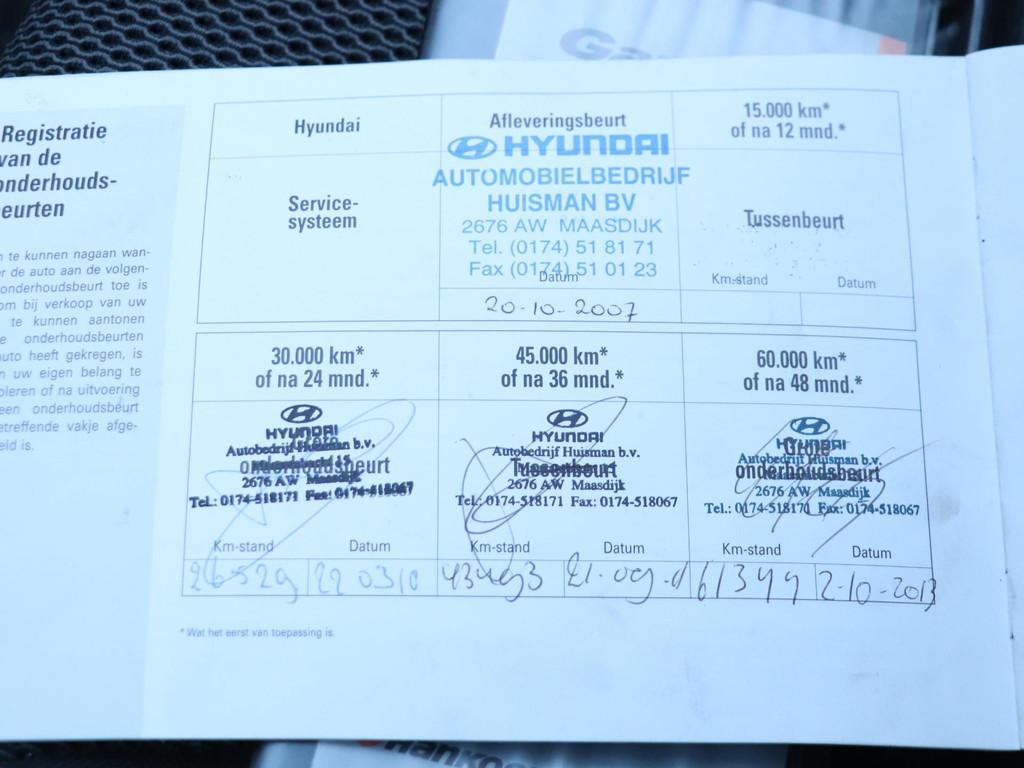 Registratie
van de
onderhouds-
eurten
te kunnen nagaan wan-
er de auto aan de volgen-
onderhoudsbeurt toe is
om bij verkoop van uw
te kunnen aantonen
e onderhoudsbeurten
auto heeft gekregen, is
n uw eigen belang te
oleren of na uitvoering
een onderhoudsbeurt
etreffende vakje afge-
eld is.
Hyundai
Service-
systeem
Afleveringsbeurt
HYUNDAI
AUTOMOBIELBEDRIJF
HUISMAN BV
2676 AW MAASDIJK
Tel. (0174) 51 81 71
Fax (0174) 51 01 23
Datum
20-10-2007
15.000 km*
of na 12 mnd.*
Tussenbeurt
Km-stand Datum
30.000 km*
of na 24 mnd.*
HYUNDAI
Autobedrijf Huisman b.v.
onderhoudsbeurt
2676 AW Maasdijk
Tel.: 0174-518171 Fax: 0174-518067
Km-stand Datum
26529 220310
45.000 km*
of na 36 mnd.*
HYUNDAI
Autobedrijf Huisman b.v.
Tussenbeurt
2676 AW Maasdijk
Tel.: 0174-518171 Fax: 0174-518067
Km-stand Datum
60.000 km*
of na 48 mnd.*
HYUNDAI
Grote
Autobedrijf Huisman b.v.
onderhoudsbeurt
2676 AW Maasdijk
Tel.: 0174-518171 Fax: 0174-518067
Km-stand Datum
61344 2-10-2013
* Wat het eerst van toepassing is.